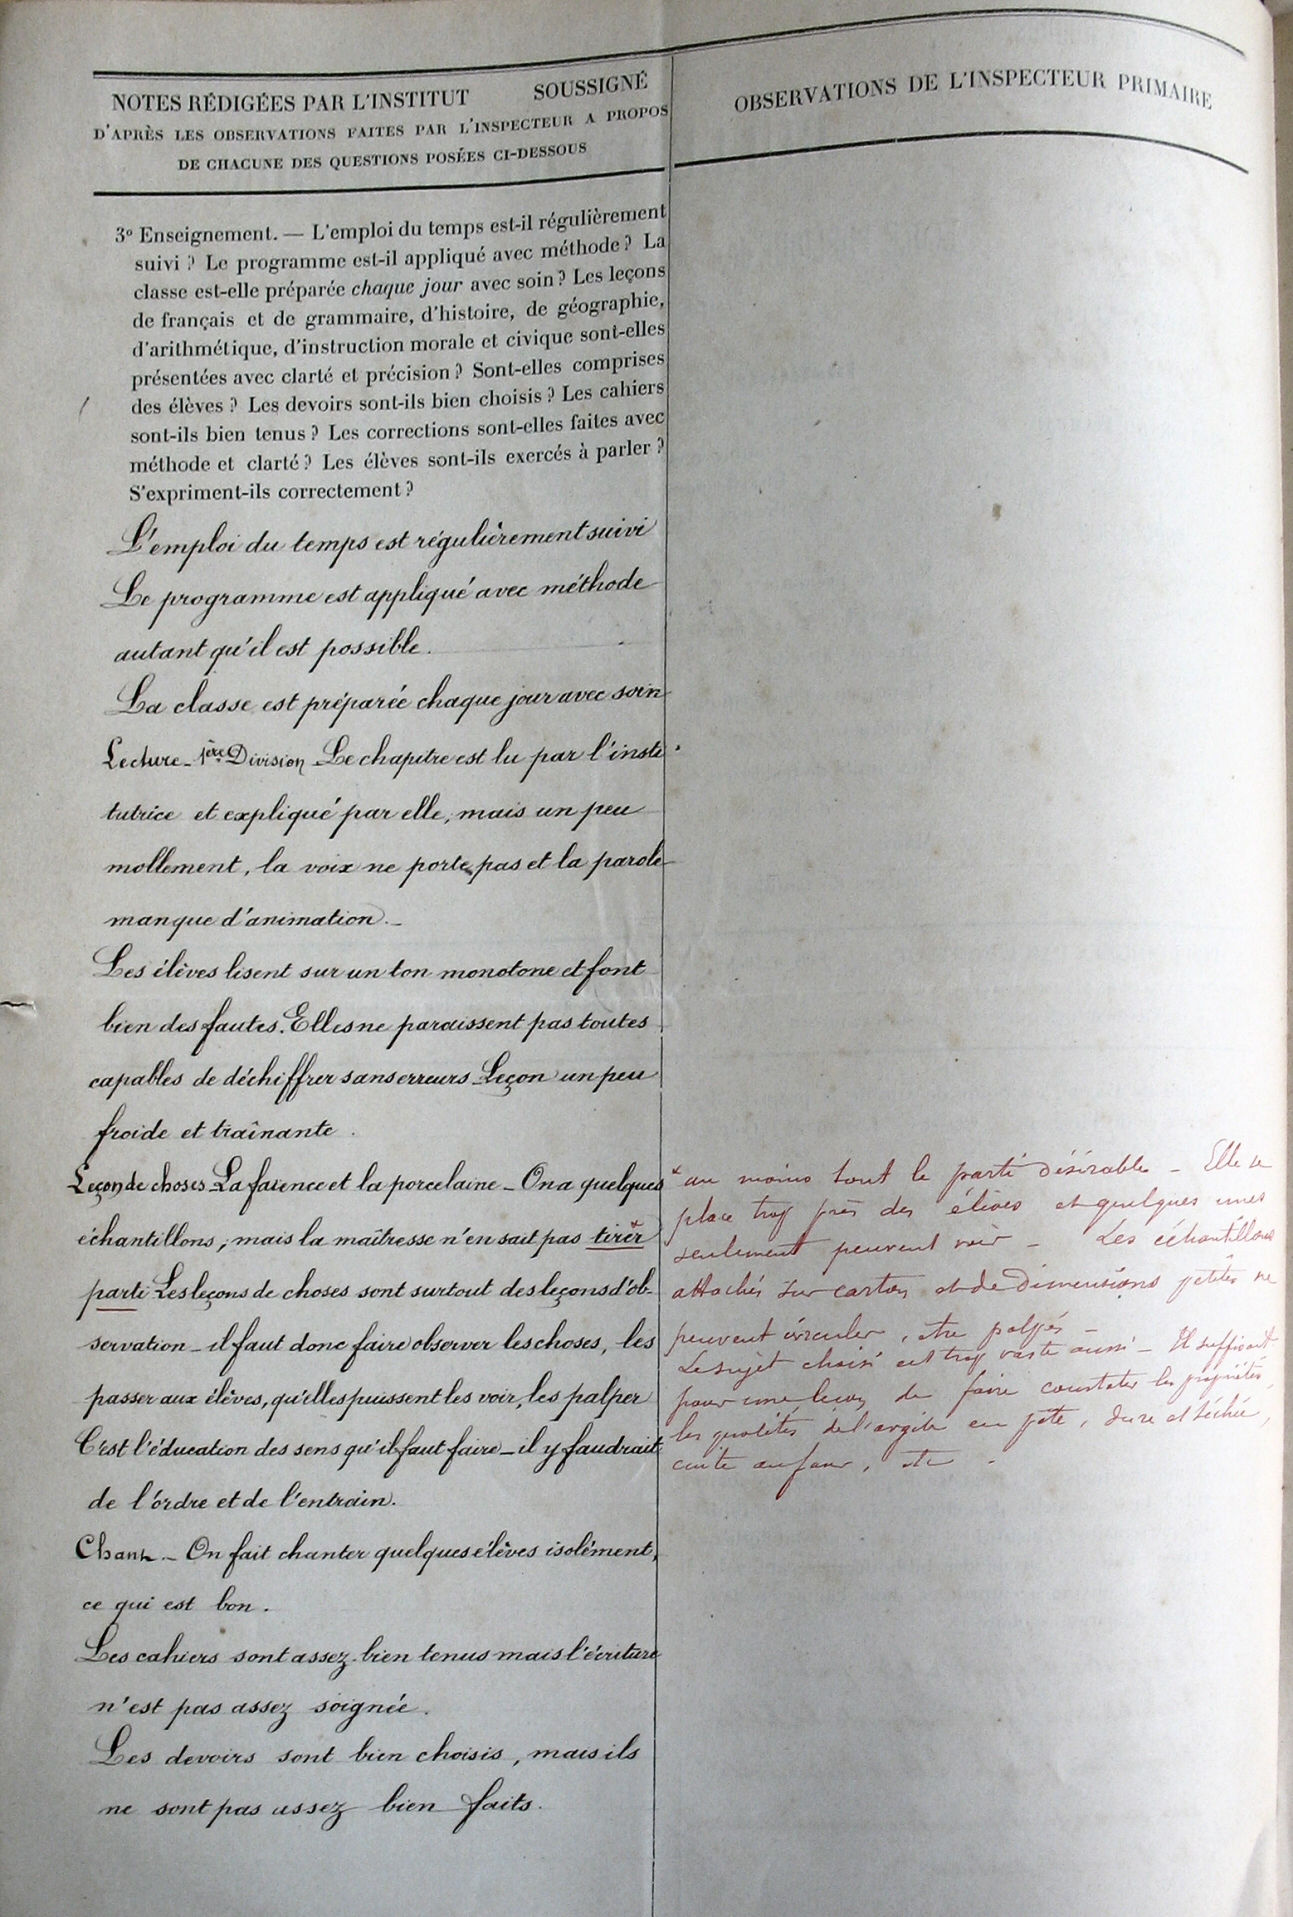 NOTES RÉDIGÉES PAR L'INSTITUT SOUSSIGNÉ
D'APRÈS LES OBSERVATIONS FAITES PAR L'INSPECTEUR A PROPOS
DE CHACUNE DES QUESTIONS POSÉES CI-DESSOUS
OBSERVATIONS DE L'INSPECTEUR PRIMAIRE
3º Enseignement. — L'emploi du temps est-il régulièrement
suivi ? Le programme est-il appliqué avec méthode ? La
classe est-elle préparée chaque jour avec soin ? Les leçons
de français et de grammaire, d'histoire, de géographie,
d'arithmétique, d'instruction morale et civique sont-elles
présentées avec clarté et précision ? Sont-elles comprises
des élèves ? Les devoirs sont-ils bien choisis ? Les cahiers
sont-ils bien tenus ? Les corrections sont-elles faites avec
méthode et clarté ? Les élèves sont-ils exercés à parler ?
S'expriment-ils correctement ?
L'emploi du temps est régulièrement suivi
Le programme est appliqué avec méthode
autant qu'il est possible.
La classe est préparée chaque jour avec soin
Lecture - 1ère Division - Le chapitre est lu par l'insti
tutrice et expliqué par elle, mais un peu
mollement, la voix ne porte pas et la parole
manque d'animation. -
Les élèves lisent sur un ton monotone et font
bien des fautes. Elles ne paraissent pas toutes
capables de déchiffrer sans erreurs - Leçon un peu
froide et traînante.
Leçon de choses - La faïence et la porcelaine - On a quelques
échantillons, mais la maîtresse n'en sait pas tirer*
parti Les leçons de choses sont surtout des leçons d'ob-
servation - il faut donc faire observer les choses, les
passer aux élèves, qu'elles puissent les voir, les palper
C'est l'éducation des sens qu'il faut faire - il y faudrait
de l'ordre et de l'entrain.
Chant - On fait chanter quelques élèves isolément,
ce qui est bon.
Les cahiers sont assez bien tenus mais l'écriture
n'est pas assez soignée.
Les devoirs sont bien choisis, mais ils
ne sont pas assez bien faits.
* au moins tout le parti désirable - Elle se
place trop près des élèves et quelques unes
seulement peuvent voir - Les échantillons
attachés sur carton et de dimensions petites ne
peuvent circuler, être palpés -
Le sujet choisi est trop vaste aussi - Il suffisait
pour une leçon de faire constater les propriétés,
les qualités de l'argile en pâte, dure et séchée,
cuite au four, etc.